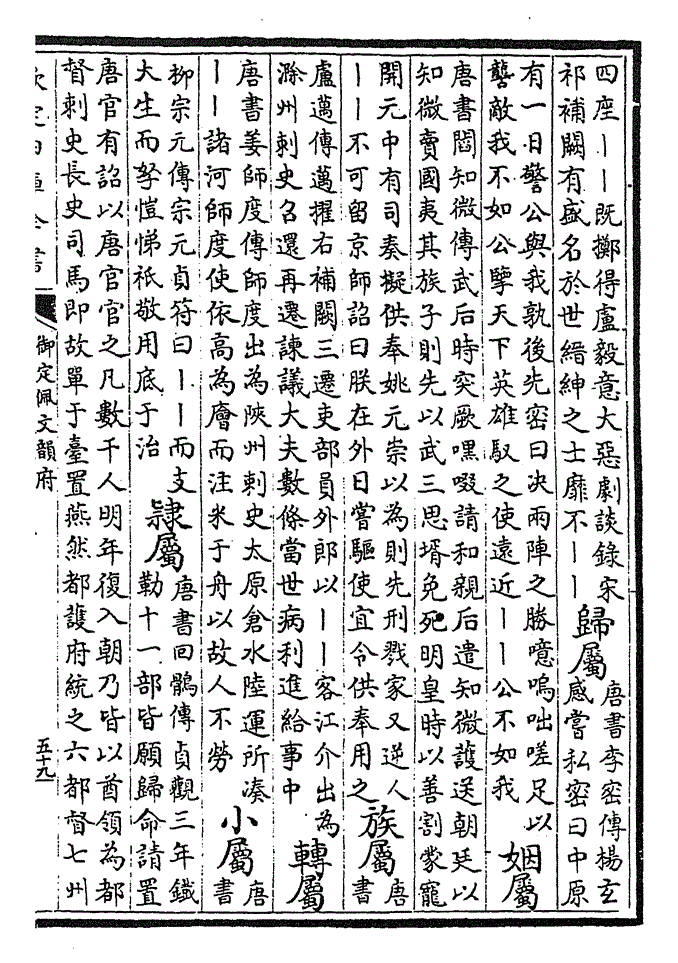 四座丨丨既擲得盧毅意大惡劇談錄宋
祁補闕有盛名於世縉紳之士靡不丨丨
歸屬
唐書李密傳楊玄
感嘗私密曰中原
有一日警公與我孰後先密曰決兩陣之勝噫嗚咄嗟足以
讋敵我不如公擥天下英雄馭之使遠近丨丨公不如我
姻屬
唐書閻知微傳武后時突厥嘿啜請和親后遣知微護送朝廷以
知微賣國夷其族子則先以武三思壻免死明皇時以善割蒙寵
開元中有司奏擬供奉姚元崇以為則先刑戮家又逆人
丨丨不可留京師詔曰朕在外日嘗驅使宜令供奉用之
族屬
唐
書
盧邁傳邁擢右補闕三遷吏部員外郎以丨丨客江介出為
滁州刺史召還再遷諫議大夫數條當世病利進給事中
轉屬
唐書姜師度傳師度出為陝州刺史太原倉水陸運所湊
丨丨諸河師度使依高為廥而注米于舟以故人不勞
小屬
唐
書
柳宗元傳宗元貞符曰丨丨而支
大生而孥愷悌祗敬用底于治
隸屬
唐書回鶻傳貞觀三年鐵
勒十一部皆願歸命請置
唐官有詔以唐官官之凡數千人明年復入朝乃皆以酋領為都
督刺史長史司馬即故單于臺置燕然都護府統之六都督七州
欽定四庫全書
御定佩文韻府
五十九